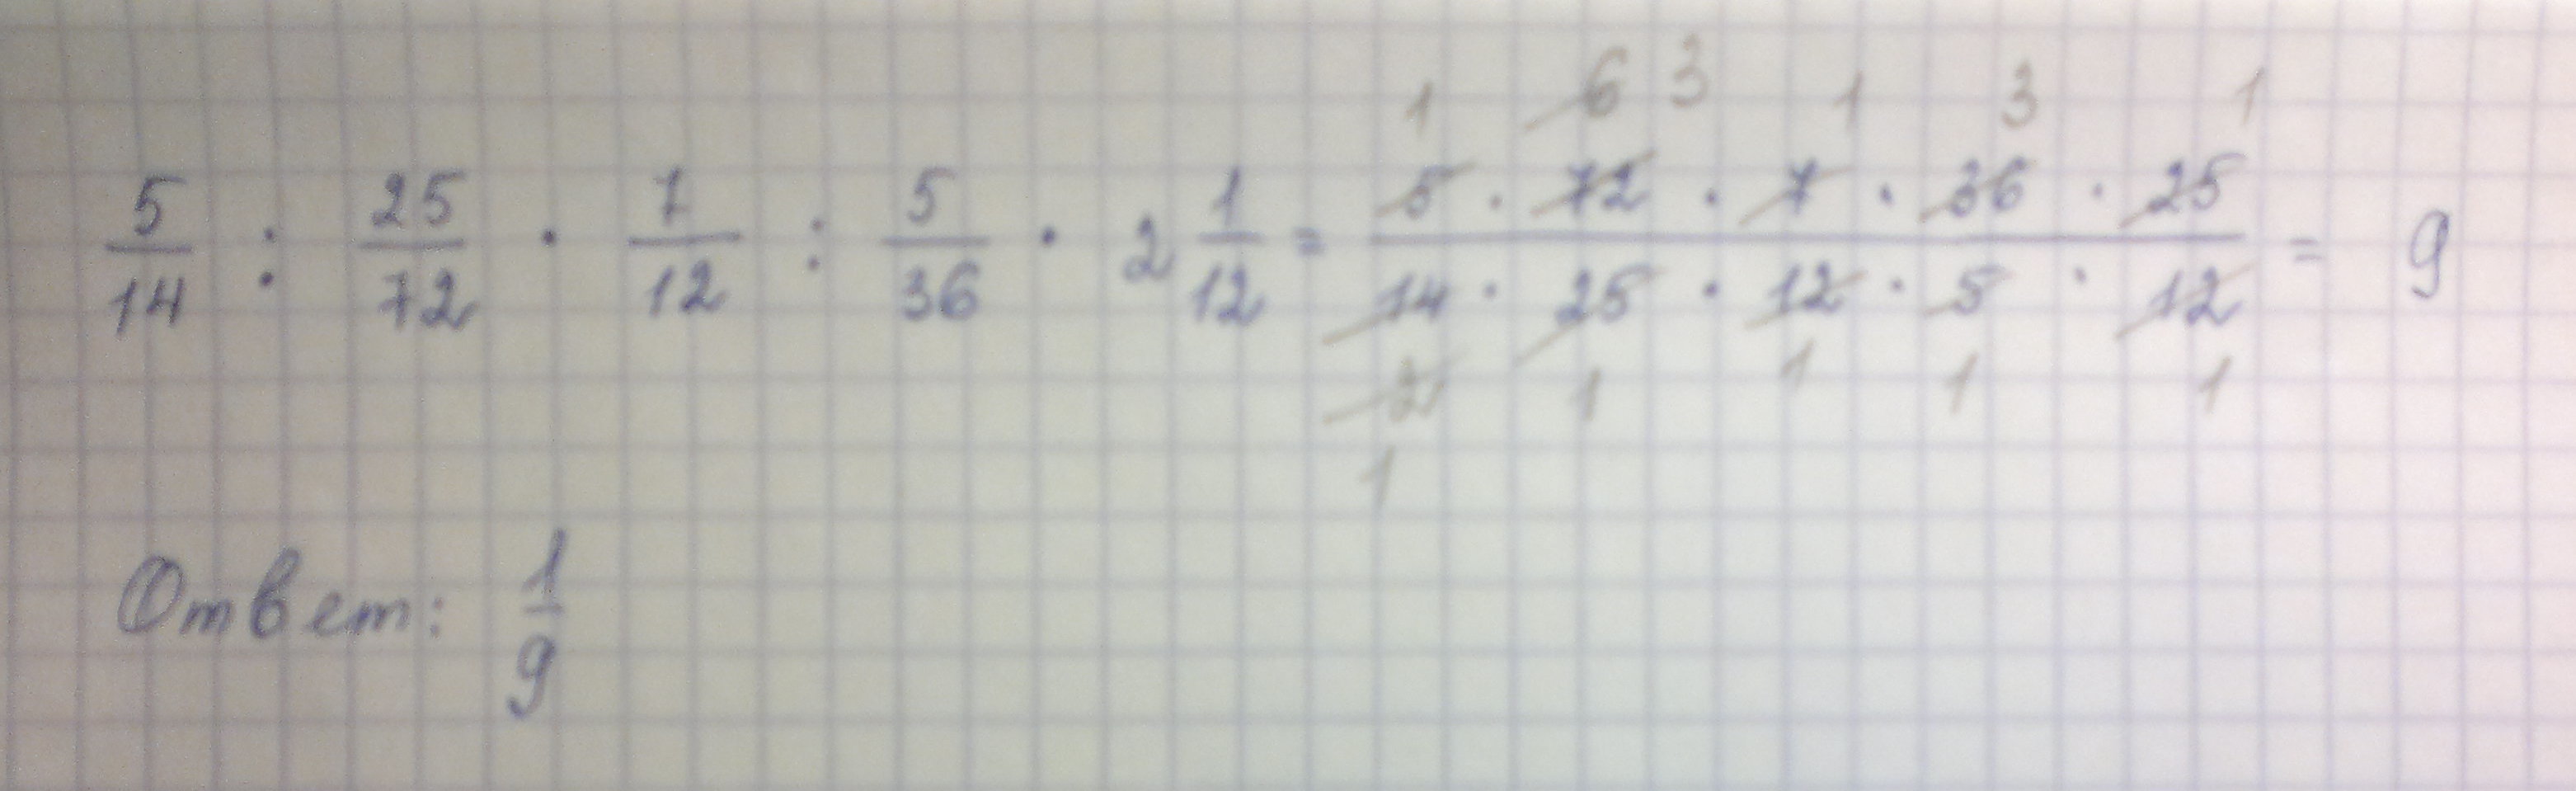 5/14 : 25/72 · 7/12 : 5/36 · 2 1/12 = 5 · 72 · 7 · 36 · 25 / 14 · 25 · 12 · 5 · 12 = 9
1 6 3 1 3 1
2 1 1 1 1
1
Ответ: 1/9